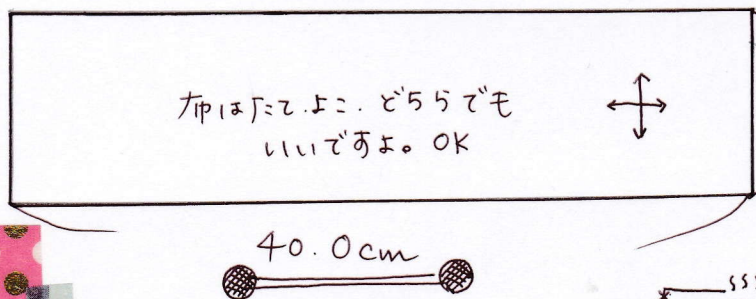 布はたて.よこ.どちらでも
いいですよ。OK
40.0cm